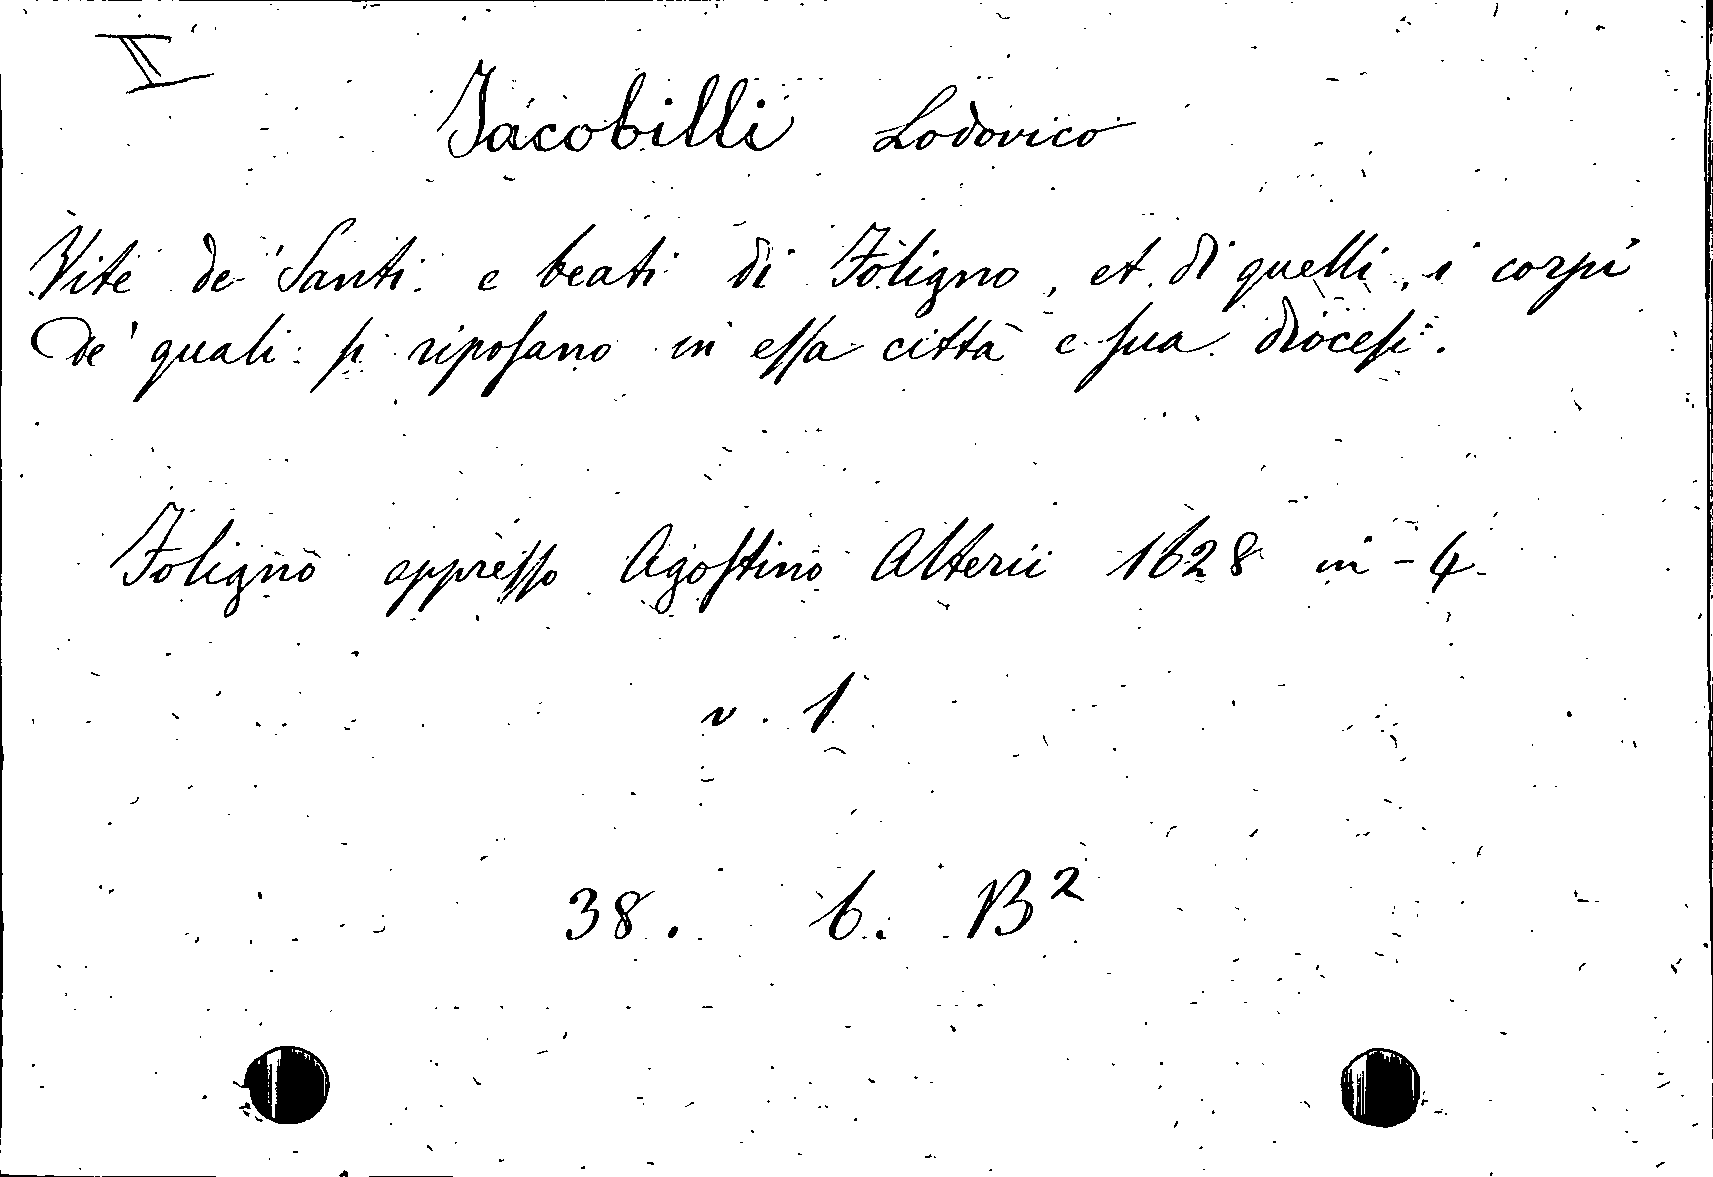 II
Jacobilli Lodovico
Vite de' Santi e beati di Foligno, et di quelli, i corpi
de' quali si riposano in essa città e sua diocesi.
Foligno appresso Agostino Alterii 1628 in-4
v. 1
38. 6. B²